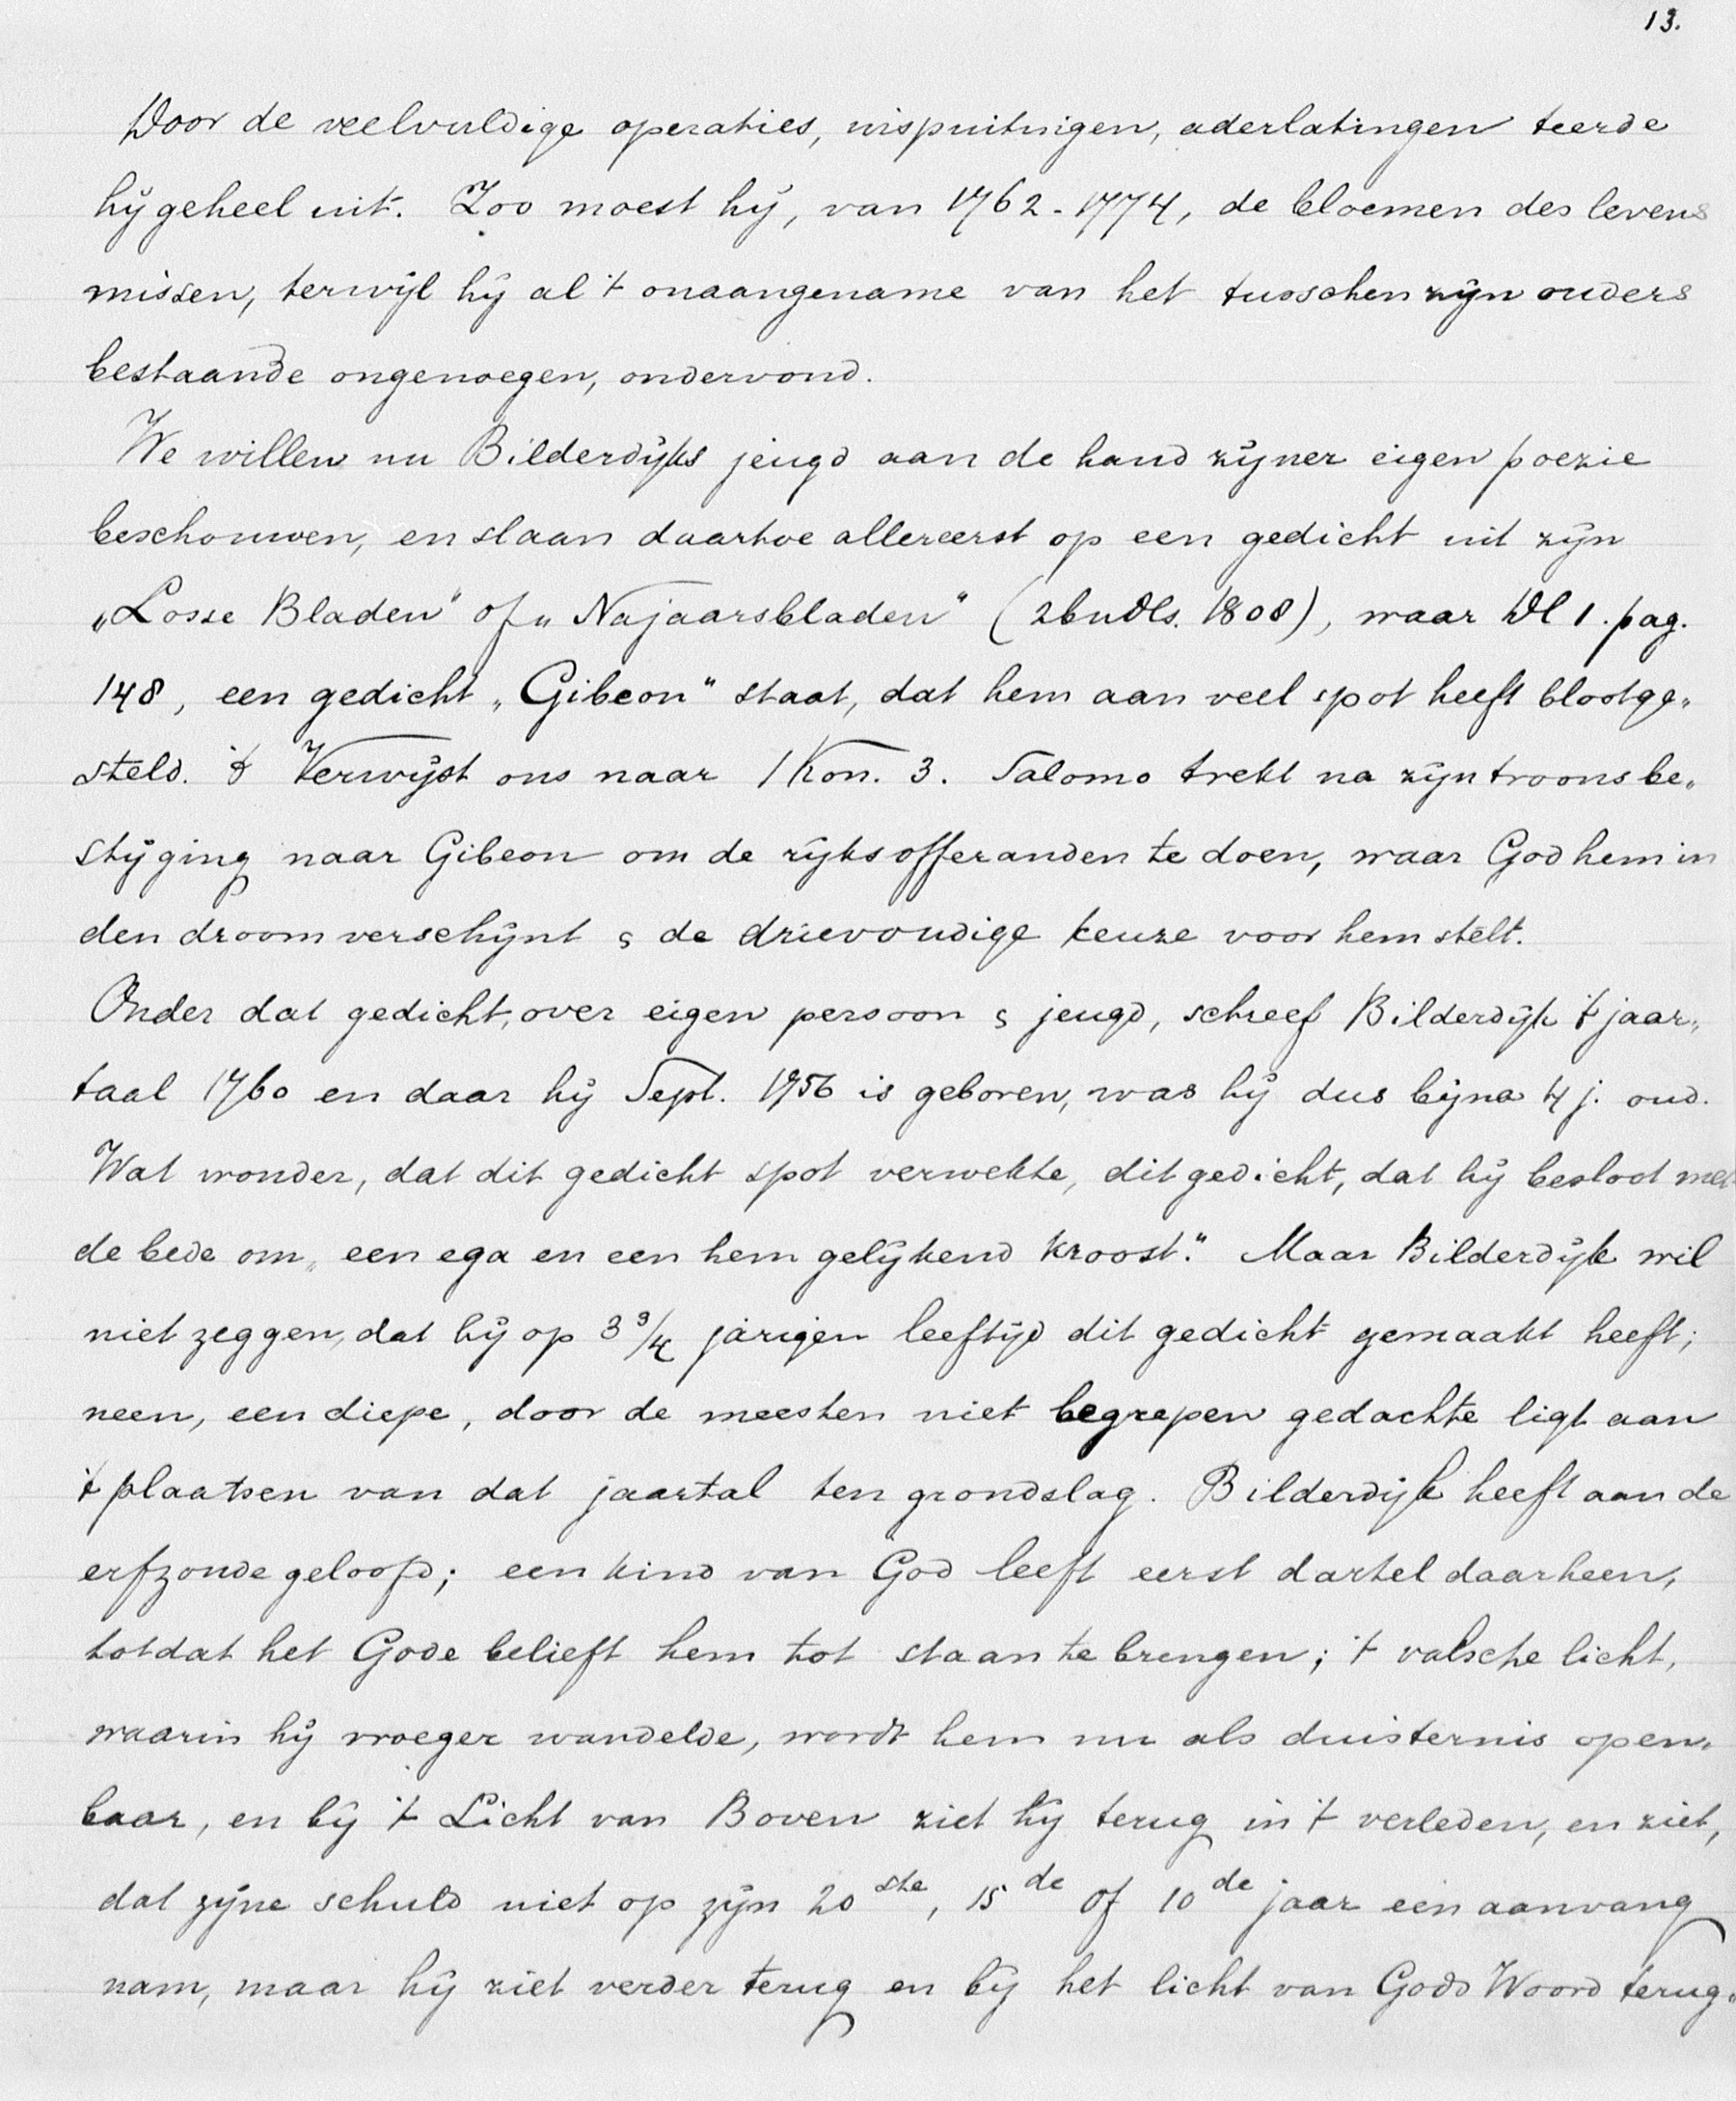 13.
Door de veelvuldige operaties, inspuitingen, aderlatingen teerde
hij geheel uit. Zoo moest hij, van 1762-1774, de bloemen des levens
missen, terwijl hij al 't onaangename van het tusschen zijn ouders
bestaande ongenoegen, ondervond.
We willen nu Bilderdijks jeugd aan de hand zijner eigen poezie
beschouwen, en slaan daartoe allereerst op een gedicht uit zijn
„Losse Bladen" of „Najaarsbladen" (2 bndls. 1808), waar Dl 1. pag.
148, een gedicht „Gibeon" staat, dat hem aan veel spot heeft blootge„
steld. 't Verwijst ons naar 1 Kon. 3. Salomo trekt na zijn troonsbe„
stijging naar Gibeon om de rijksofferanden te doen, waar God hem in
den droom verschijnt & de drievoudige keuze voor hem stelt.
Onder dat gedicht, over eigen persoon & jeugd, schreef Bilderdijk 't jaar„
taal 1760 en daar hij Sept. 1756 is geboren, was hij dus bijna 4 j. oud.
Wat wonder, dat dit gedicht spot verwekte, dit gedicht, dat hij besloot met
de bede om „een ega en een hem gelijkend kroost." Maar Bilderdijk wil
niet zeggen, dat hij op 3 3/4 jarigen leeftijd dit gedicht gemaakt heeft;
neen, een diepe, door de meesten niet begrepen gedachte ligt aan
't plaatsen van dat jaartal ten grondslag. Bilderdijk heeft aan de
erfzonde geloofd; een kind van God leeft eerst dartel daarheen,
totdat het Gode belieft hem tot staan te brengen; 't valsche licht,
waarin hij vroeger wandelde, wordt hem nu als duisternis open„
baar, en bij 't Licht van Boven ziet hij terug in 't verleden, en ziet,
dat zijne schuld niet op zijn 20ste, 15de of 10de jaar een aanvang
nam, maar hij ziet verder terug en bij het licht van Gods Woord terug„